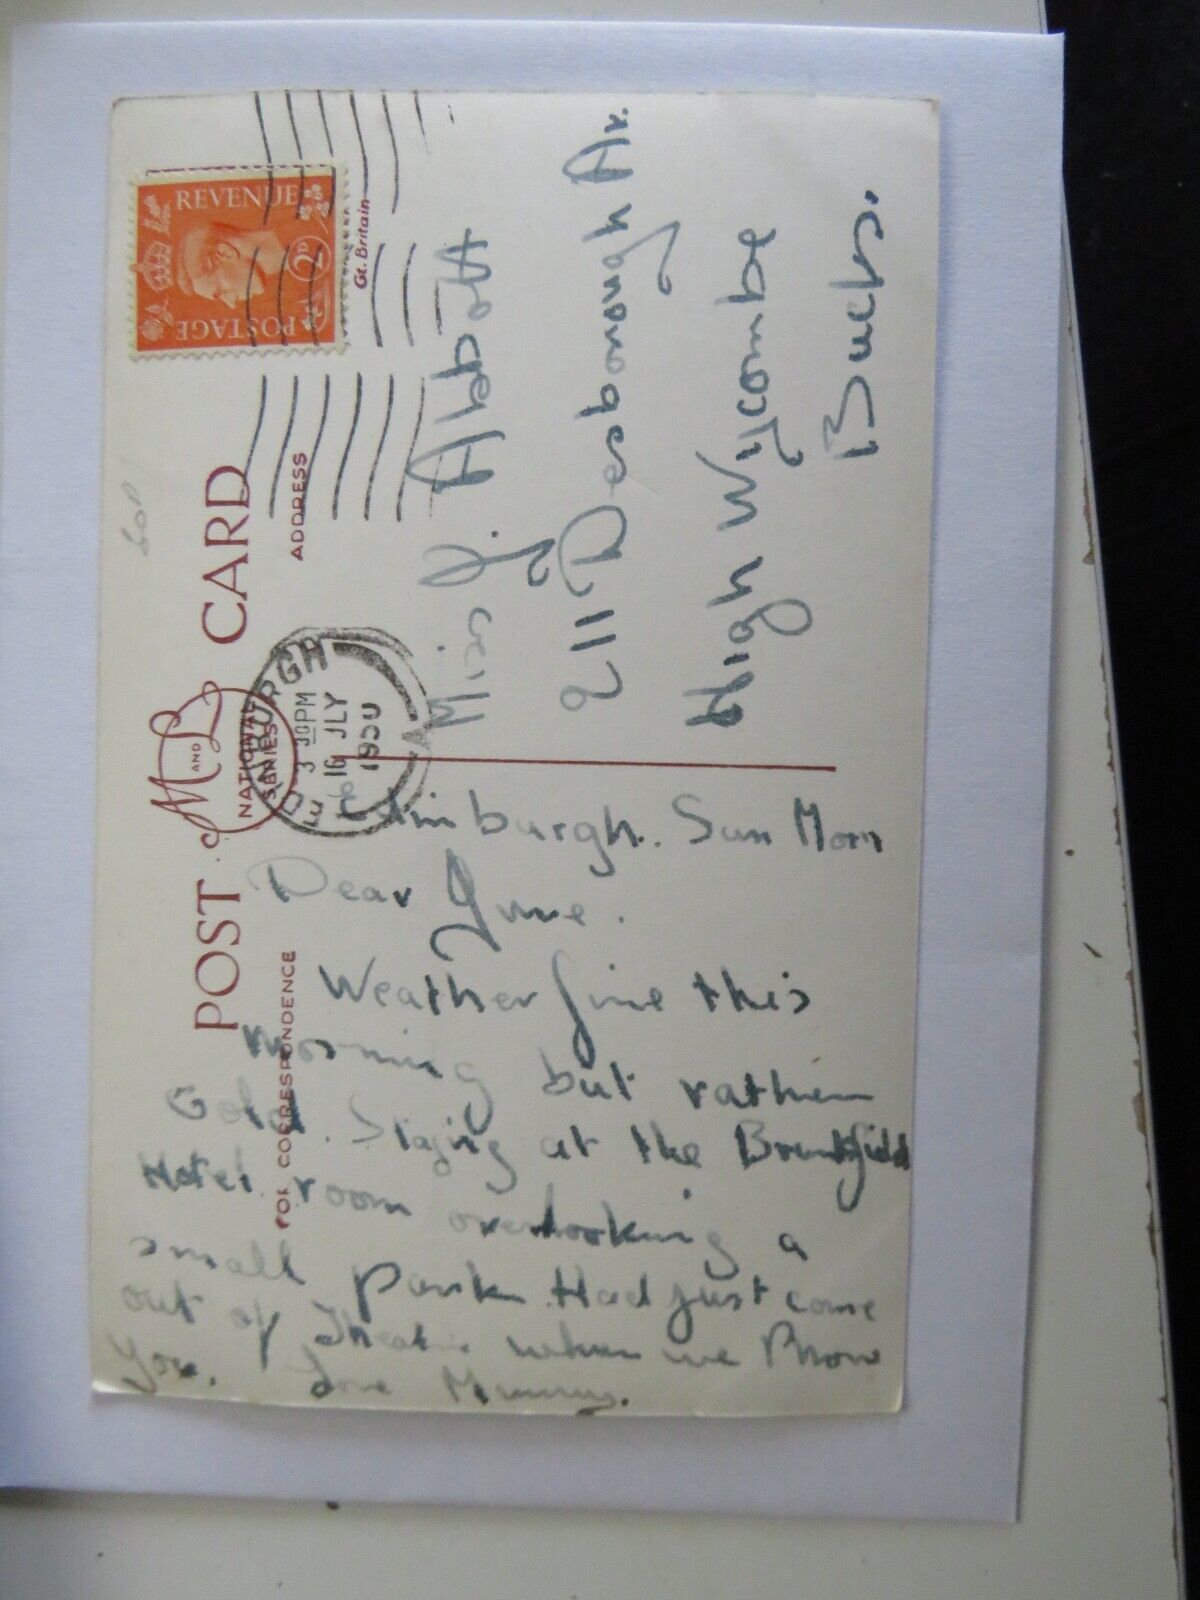 POST CARD
M AND L
NATIONAL
SERIES
FOR CORRESPONDENCE
ADDRESS
REVENUE
POSTAGE
2D
Gt. Britain
EDINBURGH
3 30PM
16 JLY
1950
Edinburgh. Sun Morn
Dear June.
Weather fine this
morning but rather
Cold. Staying at the
Hotel room overlooking a
small park. Had just come
out of Theatre when we Phone
you. Love Mummy.
Miss J. Abbott
211 Desborough Av.
High Wycombe
Bucks.